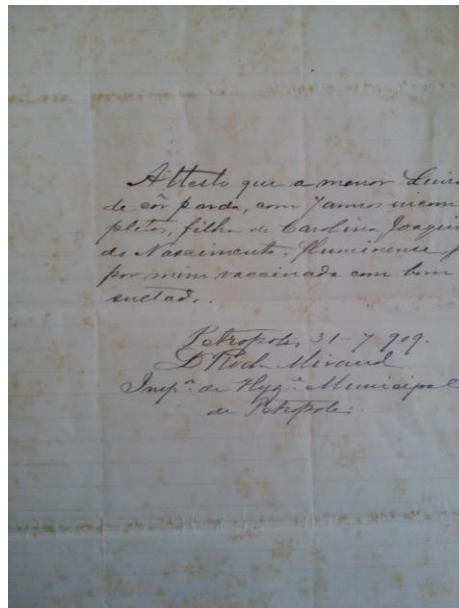 Attesto que a menor Luiza
de côr parda, com 7 annos incom
pletos, filha de Carolina Joaquin
do Nascimento, fluminense f
por mim vaccinada com bom
sultado.
Petropolis, 31-7-909.
Miranda
Insp.or de Hyg.e Municipal
de Petropolis.